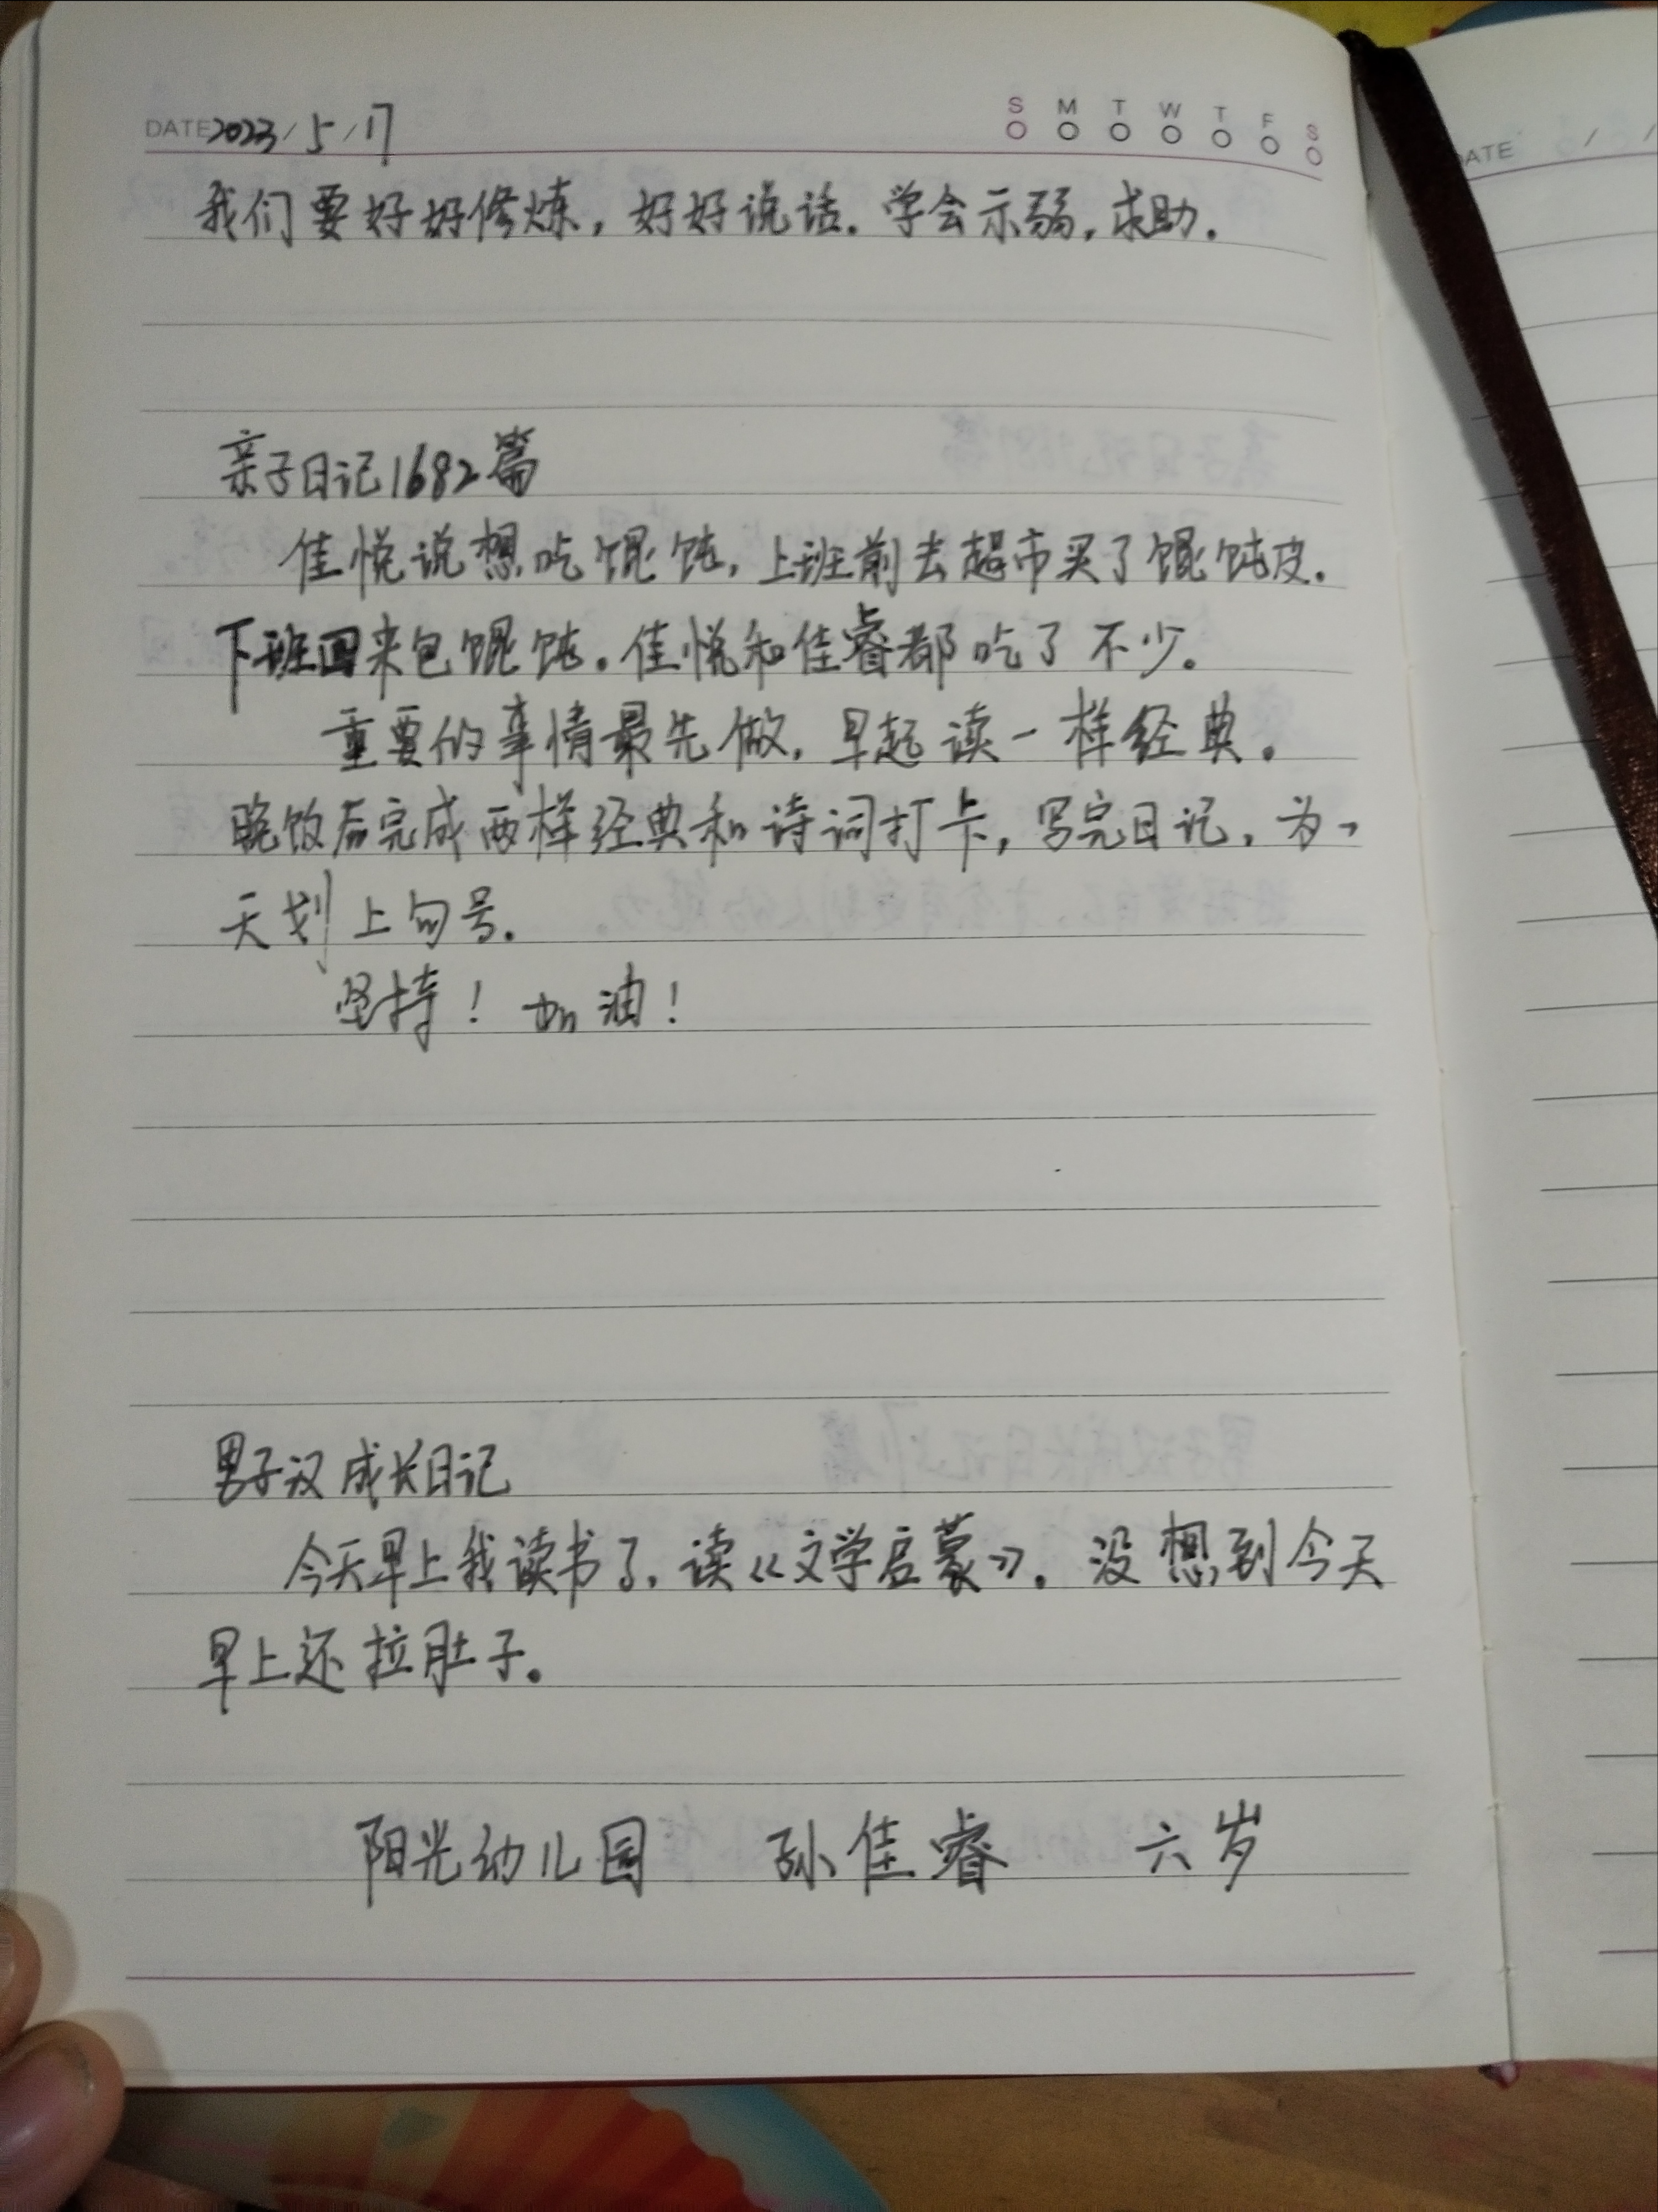 DATE 2023/5/17
S M T W T F S
我们要好好修炼，好好说话。学会示弱，求助。
亲子日记1682篇
佳悦说想吃馄饨，上班前去超市买了馄饨皮。
下班回来包馄饨。佳悦和佳睿都吃了不少。
重要的事情最先做，早起读一样经典。
晚饭后完成两样经典和诗词打卡，写完日记，为一
天划上句号。
坚持！加油！
男子汉成长日记
今天早上我读书了，读《文学启蒙》。没想到今天
早上还拉肚子。
阳光幼儿园 孙佳睿 六岁
DATE / /